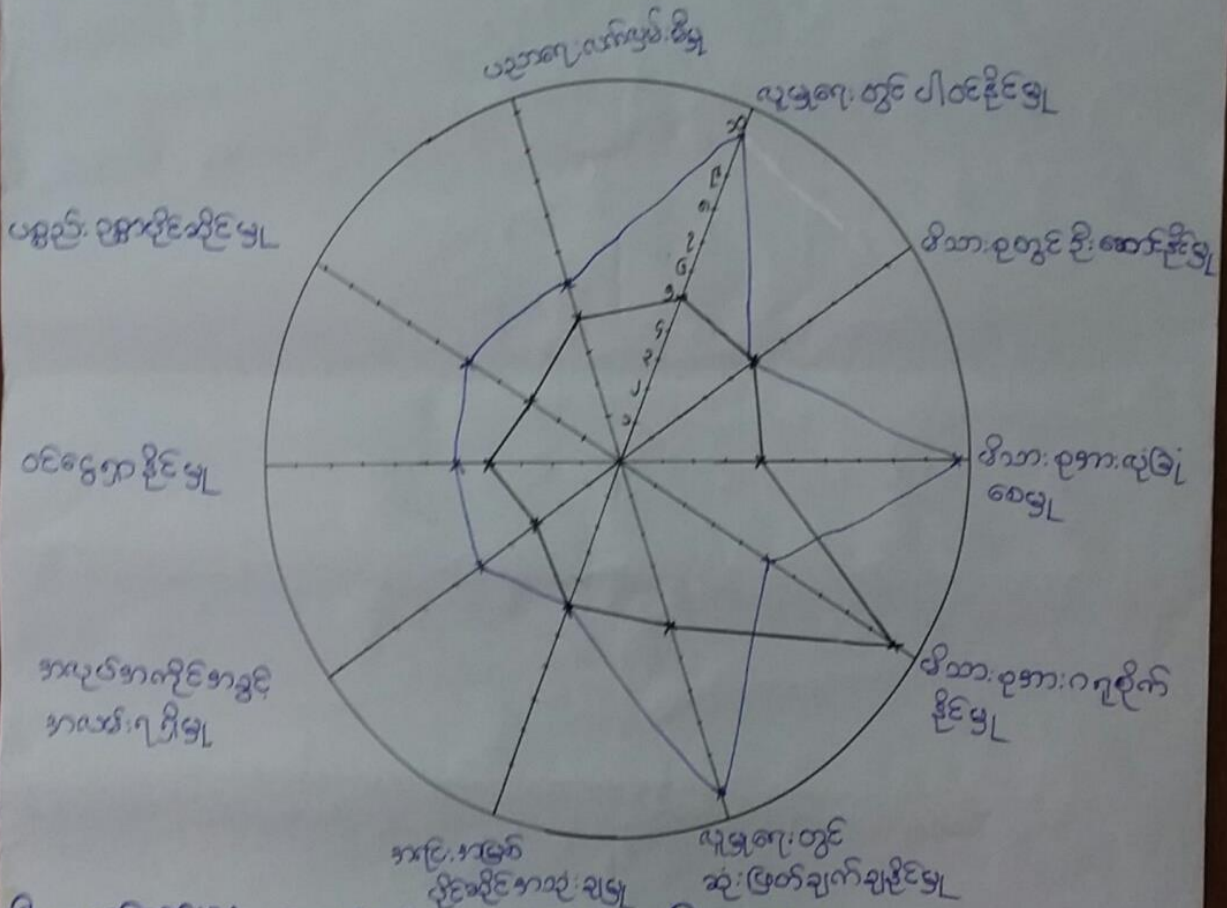 ပညာရေး လက်လှမ်းမီမှု
လူမှုရေး တွင် ပါဝင်နိုင်မှု
မိသားစုတွင် ဦးဆောင်နိုင်မှု
မိသားစုအား လုံခြုံ
စေမှု
မိသားစုအား ဂရုစိုက်
နိုင်မှု
လူမှုရေး တွင်
ဆုံးဖြတ်ချက်ချနိုင်မှု
အရင်းအမြစ်
ပိုင်ဆိုင်အသုံးချမှု
အလုပ်အကိုင်အခွင့်
အလမ်းရရှိမှု
ဝင်ငွေရှာနိုင်မှု
ပစ္စည်းဥစ္စာပိုင်ဆိုင်မှု
၁၀
၉
၈
၇
၆
၅
၄
၃
၂
၁